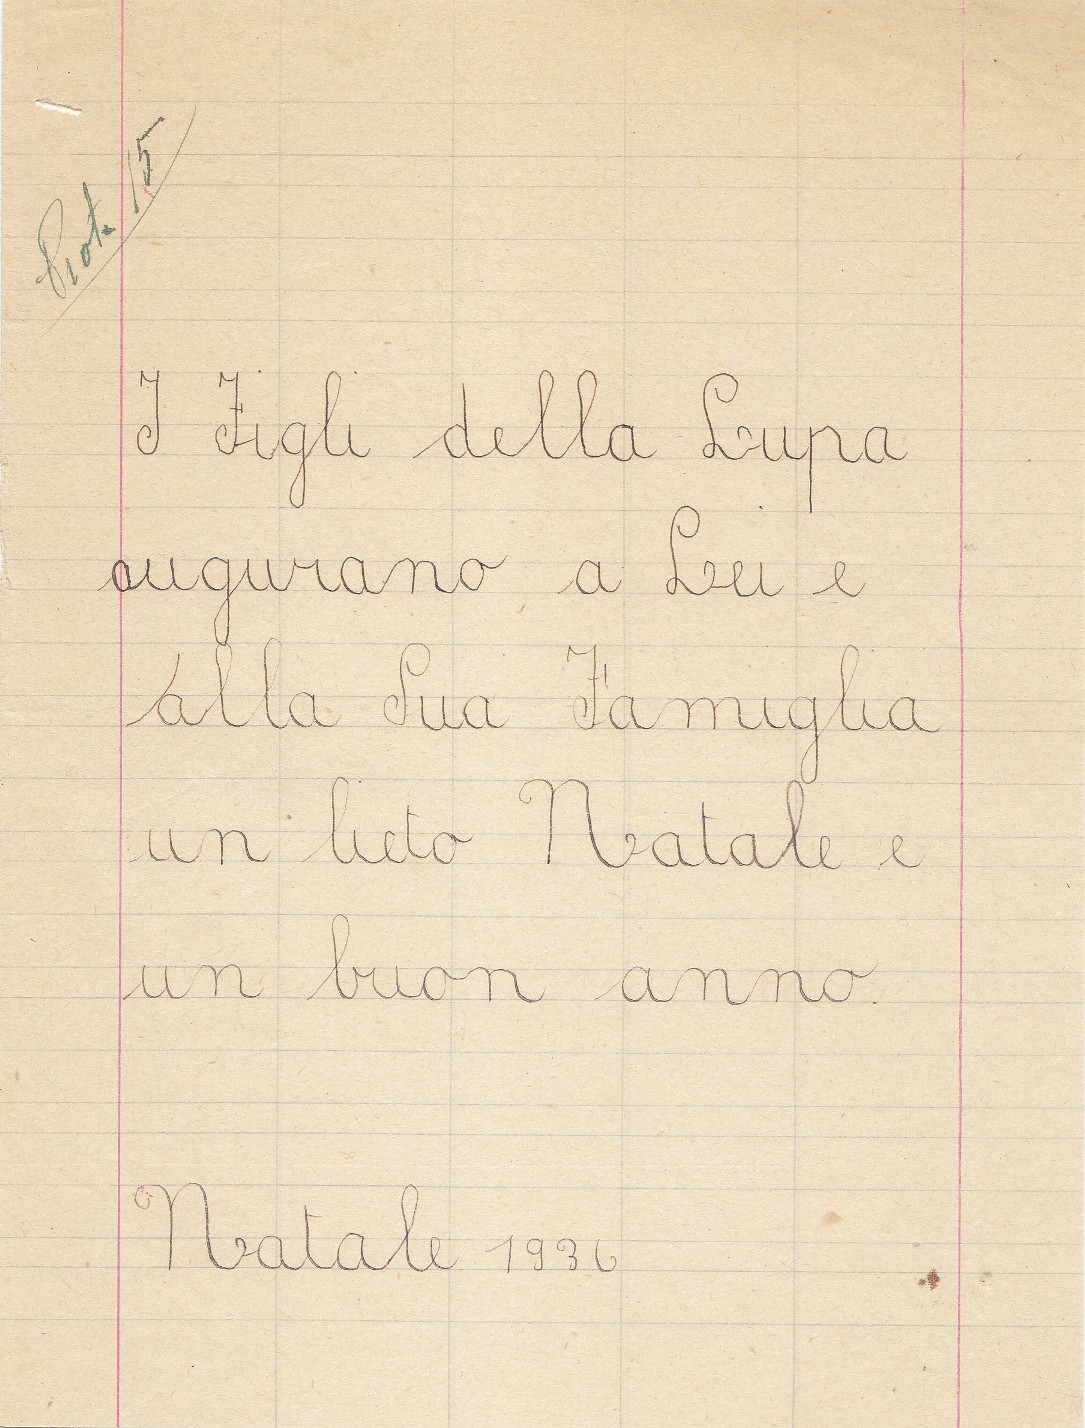 Prot. 15
I Figli della Lupa
augurano a Lei e
alla Sua Famiglia
un lieto Natale e
un buon anno.
Natale 1936